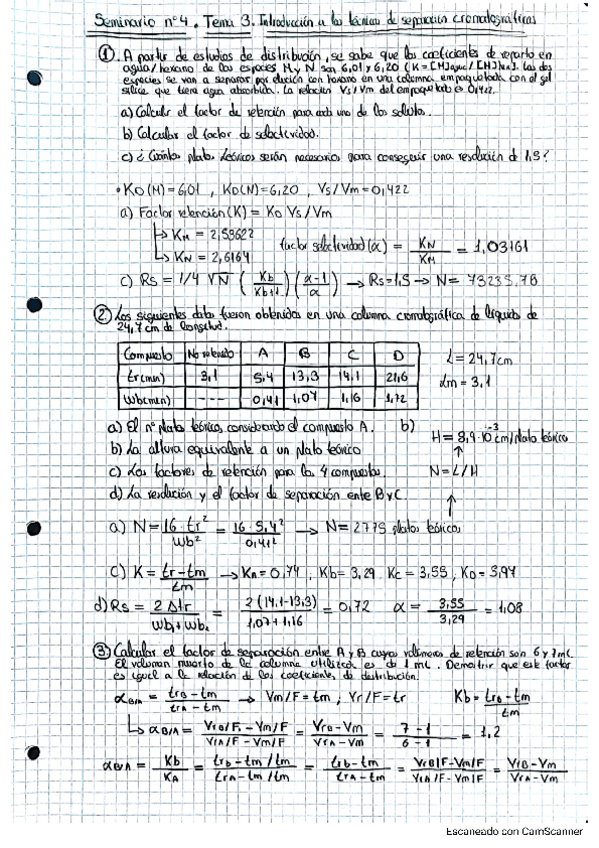 Seminario nº4. Tema 3. Introducción a las técnicas de separación cromatográficas
① A partir de estudios de distribución, se sabe que los coeficientes de reparto en
agua/hexano de las especies M y N son 6,01 y 6,20 (K = [M]agua/[M]hex). Las dos
especies se van a separar por elución con hexano en una columna empaquetada con el gel
sílice que tiene agua absorbida. La relación Vs/Vm del empaquetado es 0,422.
a) Calcular el factor de retención para cada uno de los solutos.
b) Calcular el factor de selectividad.
c) ¿Cuántos platos teóricos serán necesarios para conseguir una resolución de 1,5?
• KD(M) = 6,01 , KD(N) = 6,20 , Vs/Vm = 0,422
a) Factor retención (K) = KD Vs/Vm
↳ KM = 2,53622
↳ KN = 2,6164
factor selectividad (α) = KN/KM = 1,03161
c) Rs = 1/4 √N (Kb/Kb+1) (α-1/α) → Rs=1,5 → N= 73235,76
② Los siguientes datos fueron obtenidos en una columna cromatográfica de líquidos de
24,7 cm de longitud.
Compuesto No retenido A B C D
tr(min) 3,1 5,4 13,3 14,1 21,6
Wb(min) --- 0,41 1,07 1,16 1,72
L = 24,7cm
tm = 3,1
a) El nº plato teórico, considerando el compuesto A.
b) La altura equivalente a un plato teórico
c) Los factores de retención para los 4 compuestos.
d) La resolución y el factor de separación entre B y C.
b)
H = 8,9·10⁻³ cm/plato teórico
↑
N = L/H
↑
a) N = 16·tr²/Wb² = 16·5,4²/0,41² → N = 2775 platos teóricos
c) K = tr-tm/tm → KA = 0,74 , Kb = 3,29 Kc = 3,55 , KD = 5,97
d) Rs = 2Δtr/Wb₁+Wb₂ = 2(14,1-13,3)/1,07+1,16 = 0,72 α = 3,55/3,29 = 1,08
③ Calcular el factor de separación entre A y B cuyos volúmenes de retención son 6 y 7mL.
El volumen muerto de la columna utilizada es de 1 mL. Demostrir que este factor
es igual a la relación de los coeficientes de distribución.
αB/A = trB-tm/trA-tm → Vm/F = tm ; Vr/F = tr Kb = trB-tm/tm
↳ αB/A = VrB/F - Vm/F/VrA/F - Vm/F = VrB-Vm/VrA-Vm = 7-1/6-1 = 1,2
αB/A = Kb/KA = trB-tm/tm/trA-tm/tm = trB-tm/trA-tm = VrB/F-Vm/F/VrA/F-Vm/F = VrB-Vm/VrA-Vm
Escaneado con CamScanner